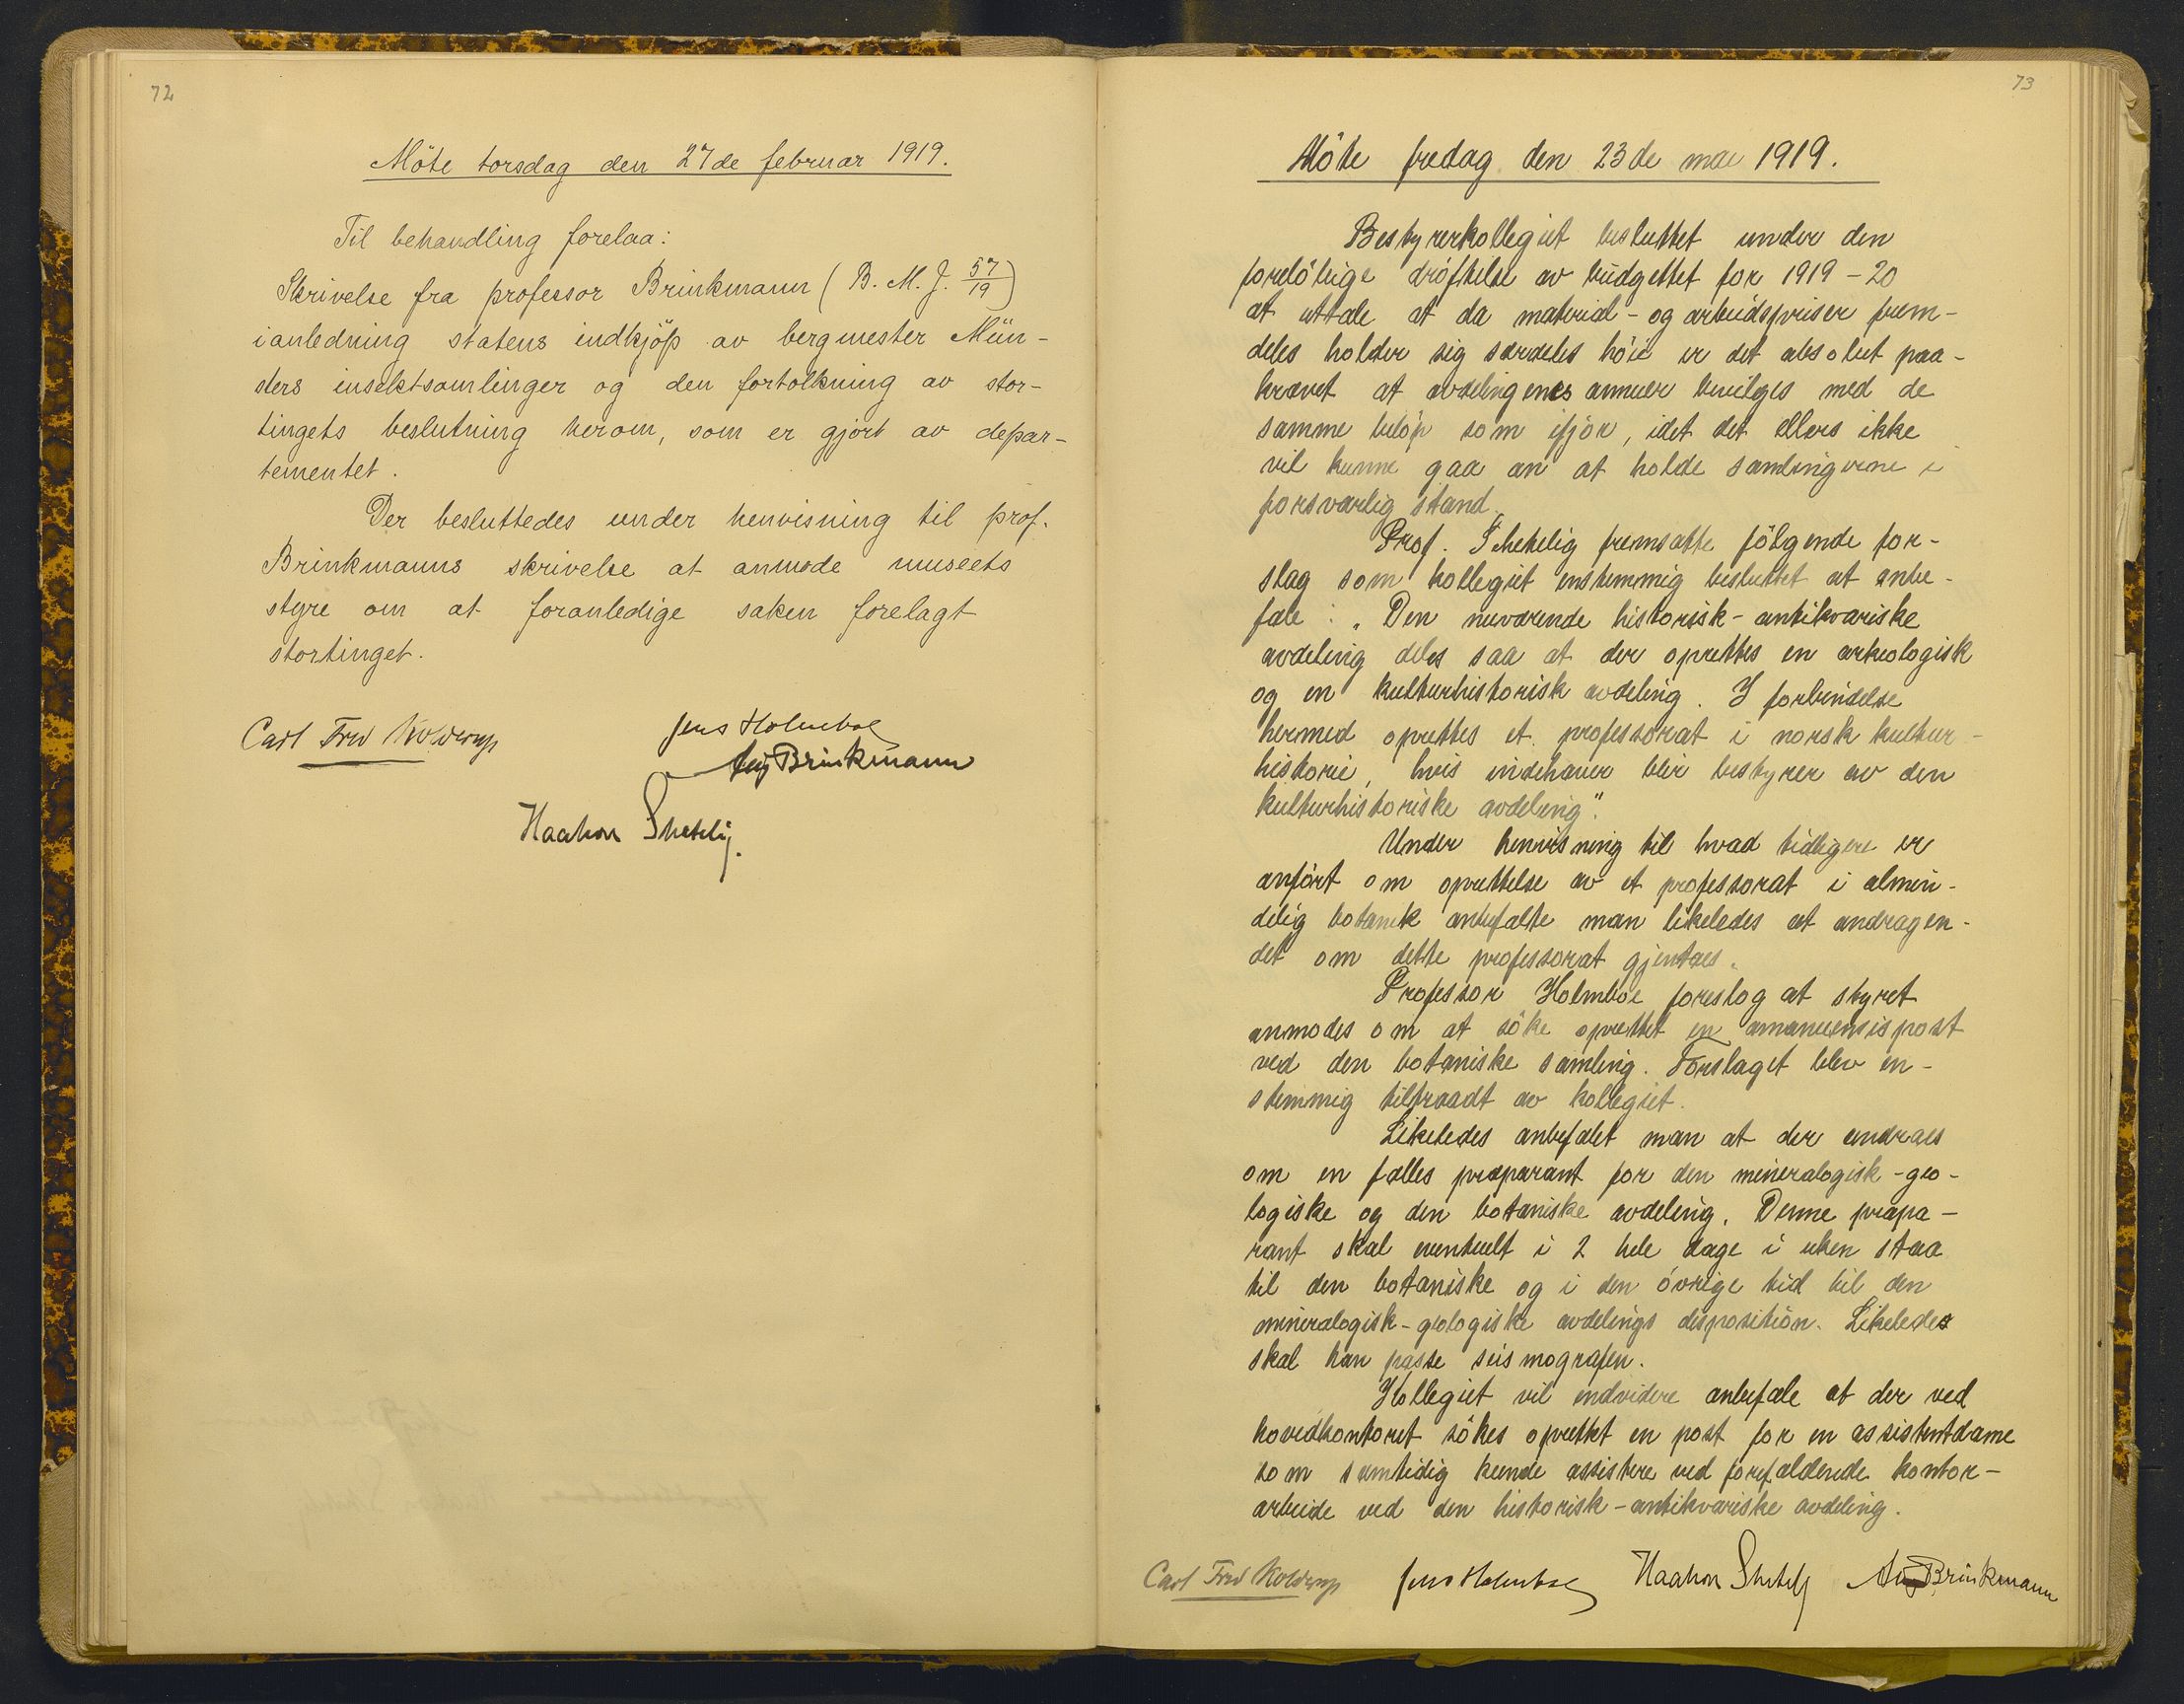 72
Möte torsdag den 27de februar 1919.
Til behandling forelaa:
Skrivelse fra professor Brinkmann (B. M. J. 57/19)
ianledning statens indkjöp av bergmester Mün-
sters insektsamlinger og den fortolkning av stor-
tingets beslutning herom, som er gjort av depar-
tementet.
Der besluttedes under henvisning til prof.
Brinkmanns skrivelse at anmode museets
styre om at foranledige saken forelagt
stortinget.
Carl Fred Kolderup
Jens Holmboe
Aug Brinkmann
Haakon Shetelig.
73
Möte fredag den 23de mai 1919.
Bestyrerkollegiet besluttet under den
forelöbige dröftelse av budgettet for 1919-20
at uttale at da material- og arbeidspriser frem-
deles holder sig særdeles höie er det absolut paa-
krævet at avdelingenes annuer bevilges med de
samme belöp som ifjor, idet det ellers ikke
vil kunne gaa an at holde samlingerne i
forsvarlig stand.
Prof. Shetelig fremsatte fölgende for-
slag som kollegiet enstemmig besluttet at anbe-
fale: „Den nuværende historisk-antikvariske
avdeling deles saa at der oprettes en arkeologisk
og en kulturhistorisk avdeling. I forbindelse
hermed oprettes et professorat i norsk kultur-
historie, hvis indehaver blir bestyrer av den
kulturhistoriske avdeling".
Under henvisning til hvad tidligere er
anfört om oprettelse av et professorat i almin-
delig botanik anbefalte man likeledes at andragen-
det om dette professorat gjentaes.
Professor Holmboe foreslog at styret
anmodes om at söke oprettet en amanuensispost
ved den botaniske samling. Forslaget blev en-
stemmig tiltraadt av kollegiet.
Likeledes anbefalet man at der andraes
om en fælles præparant for den mineralogisk-geo-
logiske og den botaniske avdeling. Denne præpa-
rant skal eventuelt i 2 hele dage i uken staa
til den botaniske og i den övrige tid til den
mineralogisk-geologiske avdelings disposition. Likeledes
skal han passe seismografen.
Kollegiet vil endvidere anbefale at der ved
hovedkontoret sökes oprettet en post for en assistentdame
som samtidig kunde assistere ved forefaldende kontor-
arbeide ved den historisk-antikvariske avdeling.
Carl Fred Kolderup Jens Holmboe Haakon Shetelig Aug Brinkmann